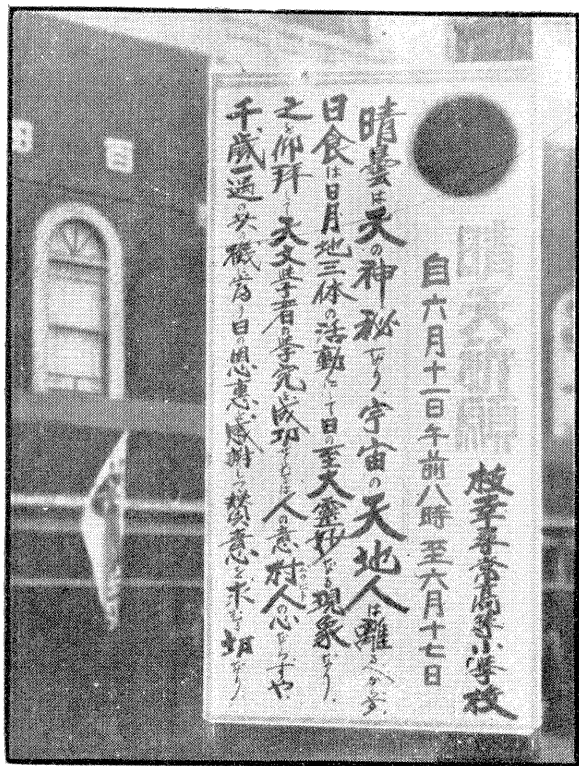 晴天祈願
枝幸尋常高等小学校
自六月十一日午前八時 至六月十七日
晴曇は天の神秘なり宇宙の天地人は離るべからず、
日食は日月地三体の活動にして日の至大霊妙なる現象なり、
之を仰拝して天文学者の学究成功 人の意村人の心ならずや、
千歳一遇の 機 日の恩恵 感謝しつ 意を求む 切なり、